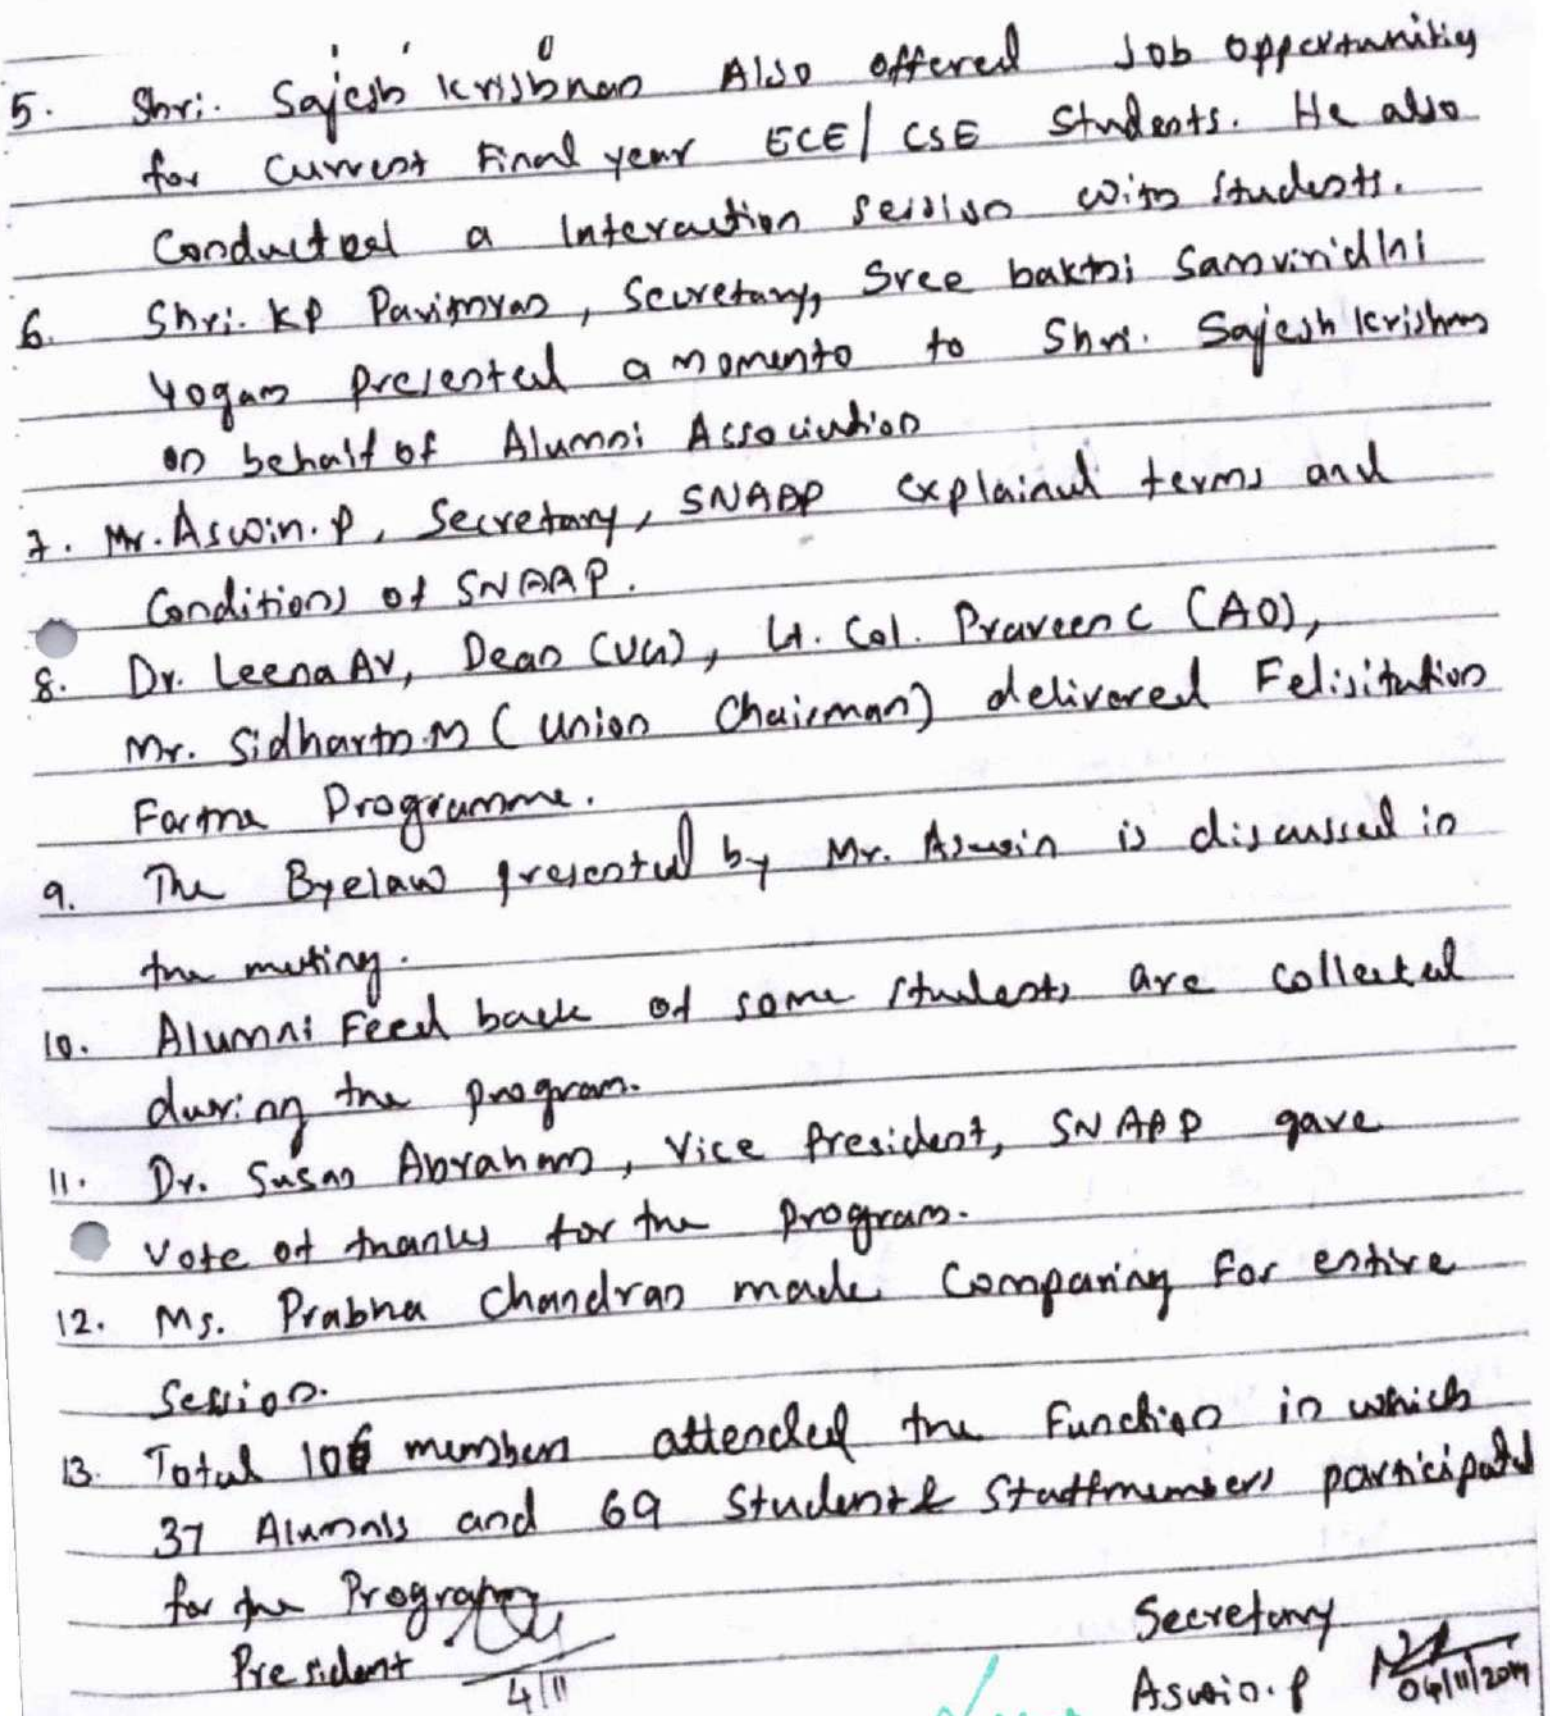 5. Shri. Sajesh Krishnan Also offered Job opportunities
for Current Final year ECE/CSE Students. He also
Conducted a Interaction session with Students.
6. Shri. KP Pavithran, Secretary, Sree bakthi Samvridhni
Yogam presented a momento to Shri. Sajesh Krishnan
on behalf of Alumni Association
7. Mr. Aswin.P, Secretary, SNAAP explained terms and
Conditions of SNAAP.
8. Dr. Leena AV, Dean (UG), Lt. Col. Praveen C (AO),
Mr. Sidharth.M (Union Chairman) delivered Felisitation
For the Programme.
9. The Byelaw presented by Mr. Aswin is discussed in
the meeting.
10. Alumni Feed back of some students are collected
during the program.
11. Dr. Susan Abraham, Vice President, SNAAP gave
Vote of thanks for the program.
12. Ms. Prabha Chandran made Comparing For entire
Session.
13. Total 106 members attended the Function in which
37 Alumnis and 69 Student & Staffmembers participated
for the Program
President
4/11
Secretary
Aswin.P
04/11/2019